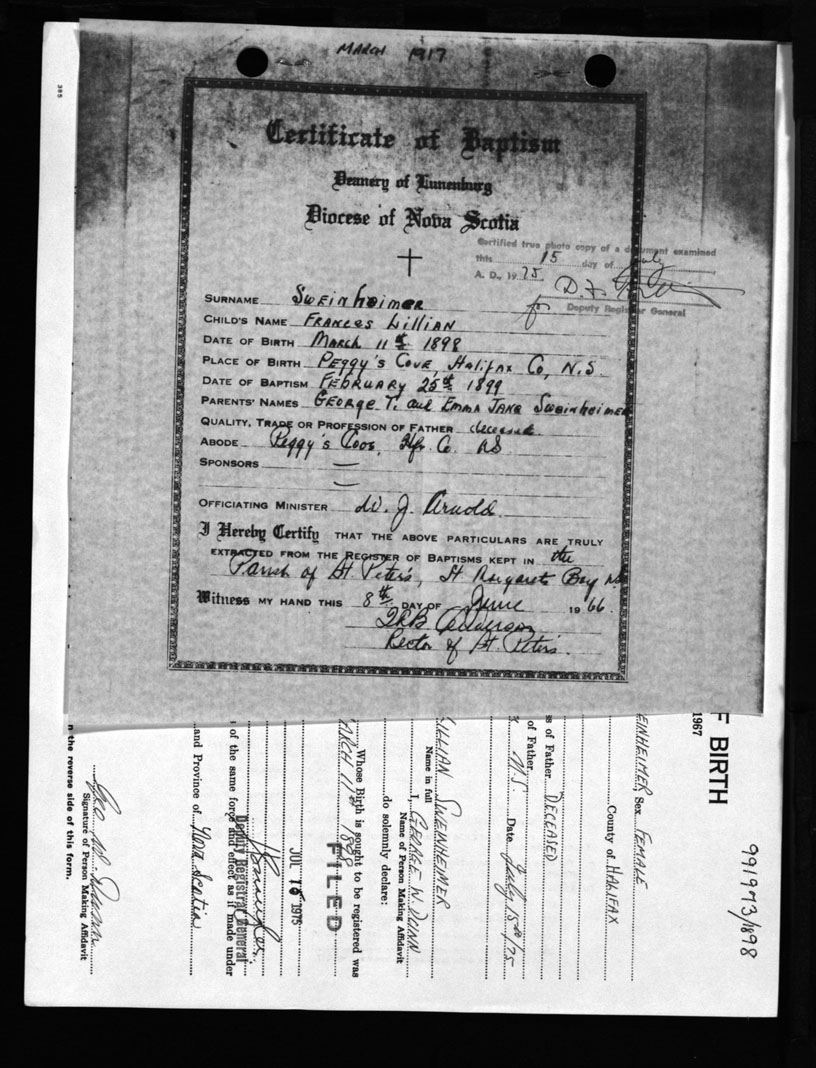 385
MARCH 1917
Certificate of Baptism
Deanery of Lunenburg
Diocese of Nova Scotia
Certified true photo copy of a document examined
this 15 day of July
A. D., 19 75
for
Deputy Registrar General
SURNAME SWEINHEIMER
CHILD'S NAME FRANCES LILLIAN
DATE OF BIRTH MARCH 11th 1898
PLACE OF BIRTH PEGGY'S COVE, HALIFAX CO, N.S.
DATE OF BAPTISM FEBRUARY 25th 1899
PARENTS' NAMES GEORGE T. and EMMA JANE SWEINHEIMER
QUALITY, TRADE OR PROFESSION OF FATHER deceased.
ABODE Peggy's Cove, Hfx. Co. NS
SPONSORS
OFFICIATING MINISTER W. J. Arnold
I Hereby Certify THAT THE ABOVE PARTICULARS ARE TRULY
EXTRACTED FROM THE REGISTER OF BAPTISMS KEPT IN the
Parish of St Peter's, St Margarets Bay NS
Witness MY HAND THIS 8th DAY OF June 1966.
Anderson
Rector of St. Peter's.
F BIRTH
1967
991973/1898
EINHEIMER Sex FEMALE
County of HALIFAX
s of Father DECEASED
of Father
N.S. Date July 15th/75
LILLIAN SWEINHEIMER
Name in full
I, GEORGE W. DUNN
Name of Person Making Affidavit
do solemnly declare:
Whose Birth is sought to be registered was
MARCH 11th 1898
FILED
JUL 15 1975
Deputy Registrar General
of the same force and effect as if made under
and Province of Nova Scotia
Geo W. Dunn
Signature of Person Making Affidavit
n the reverse side of this form.